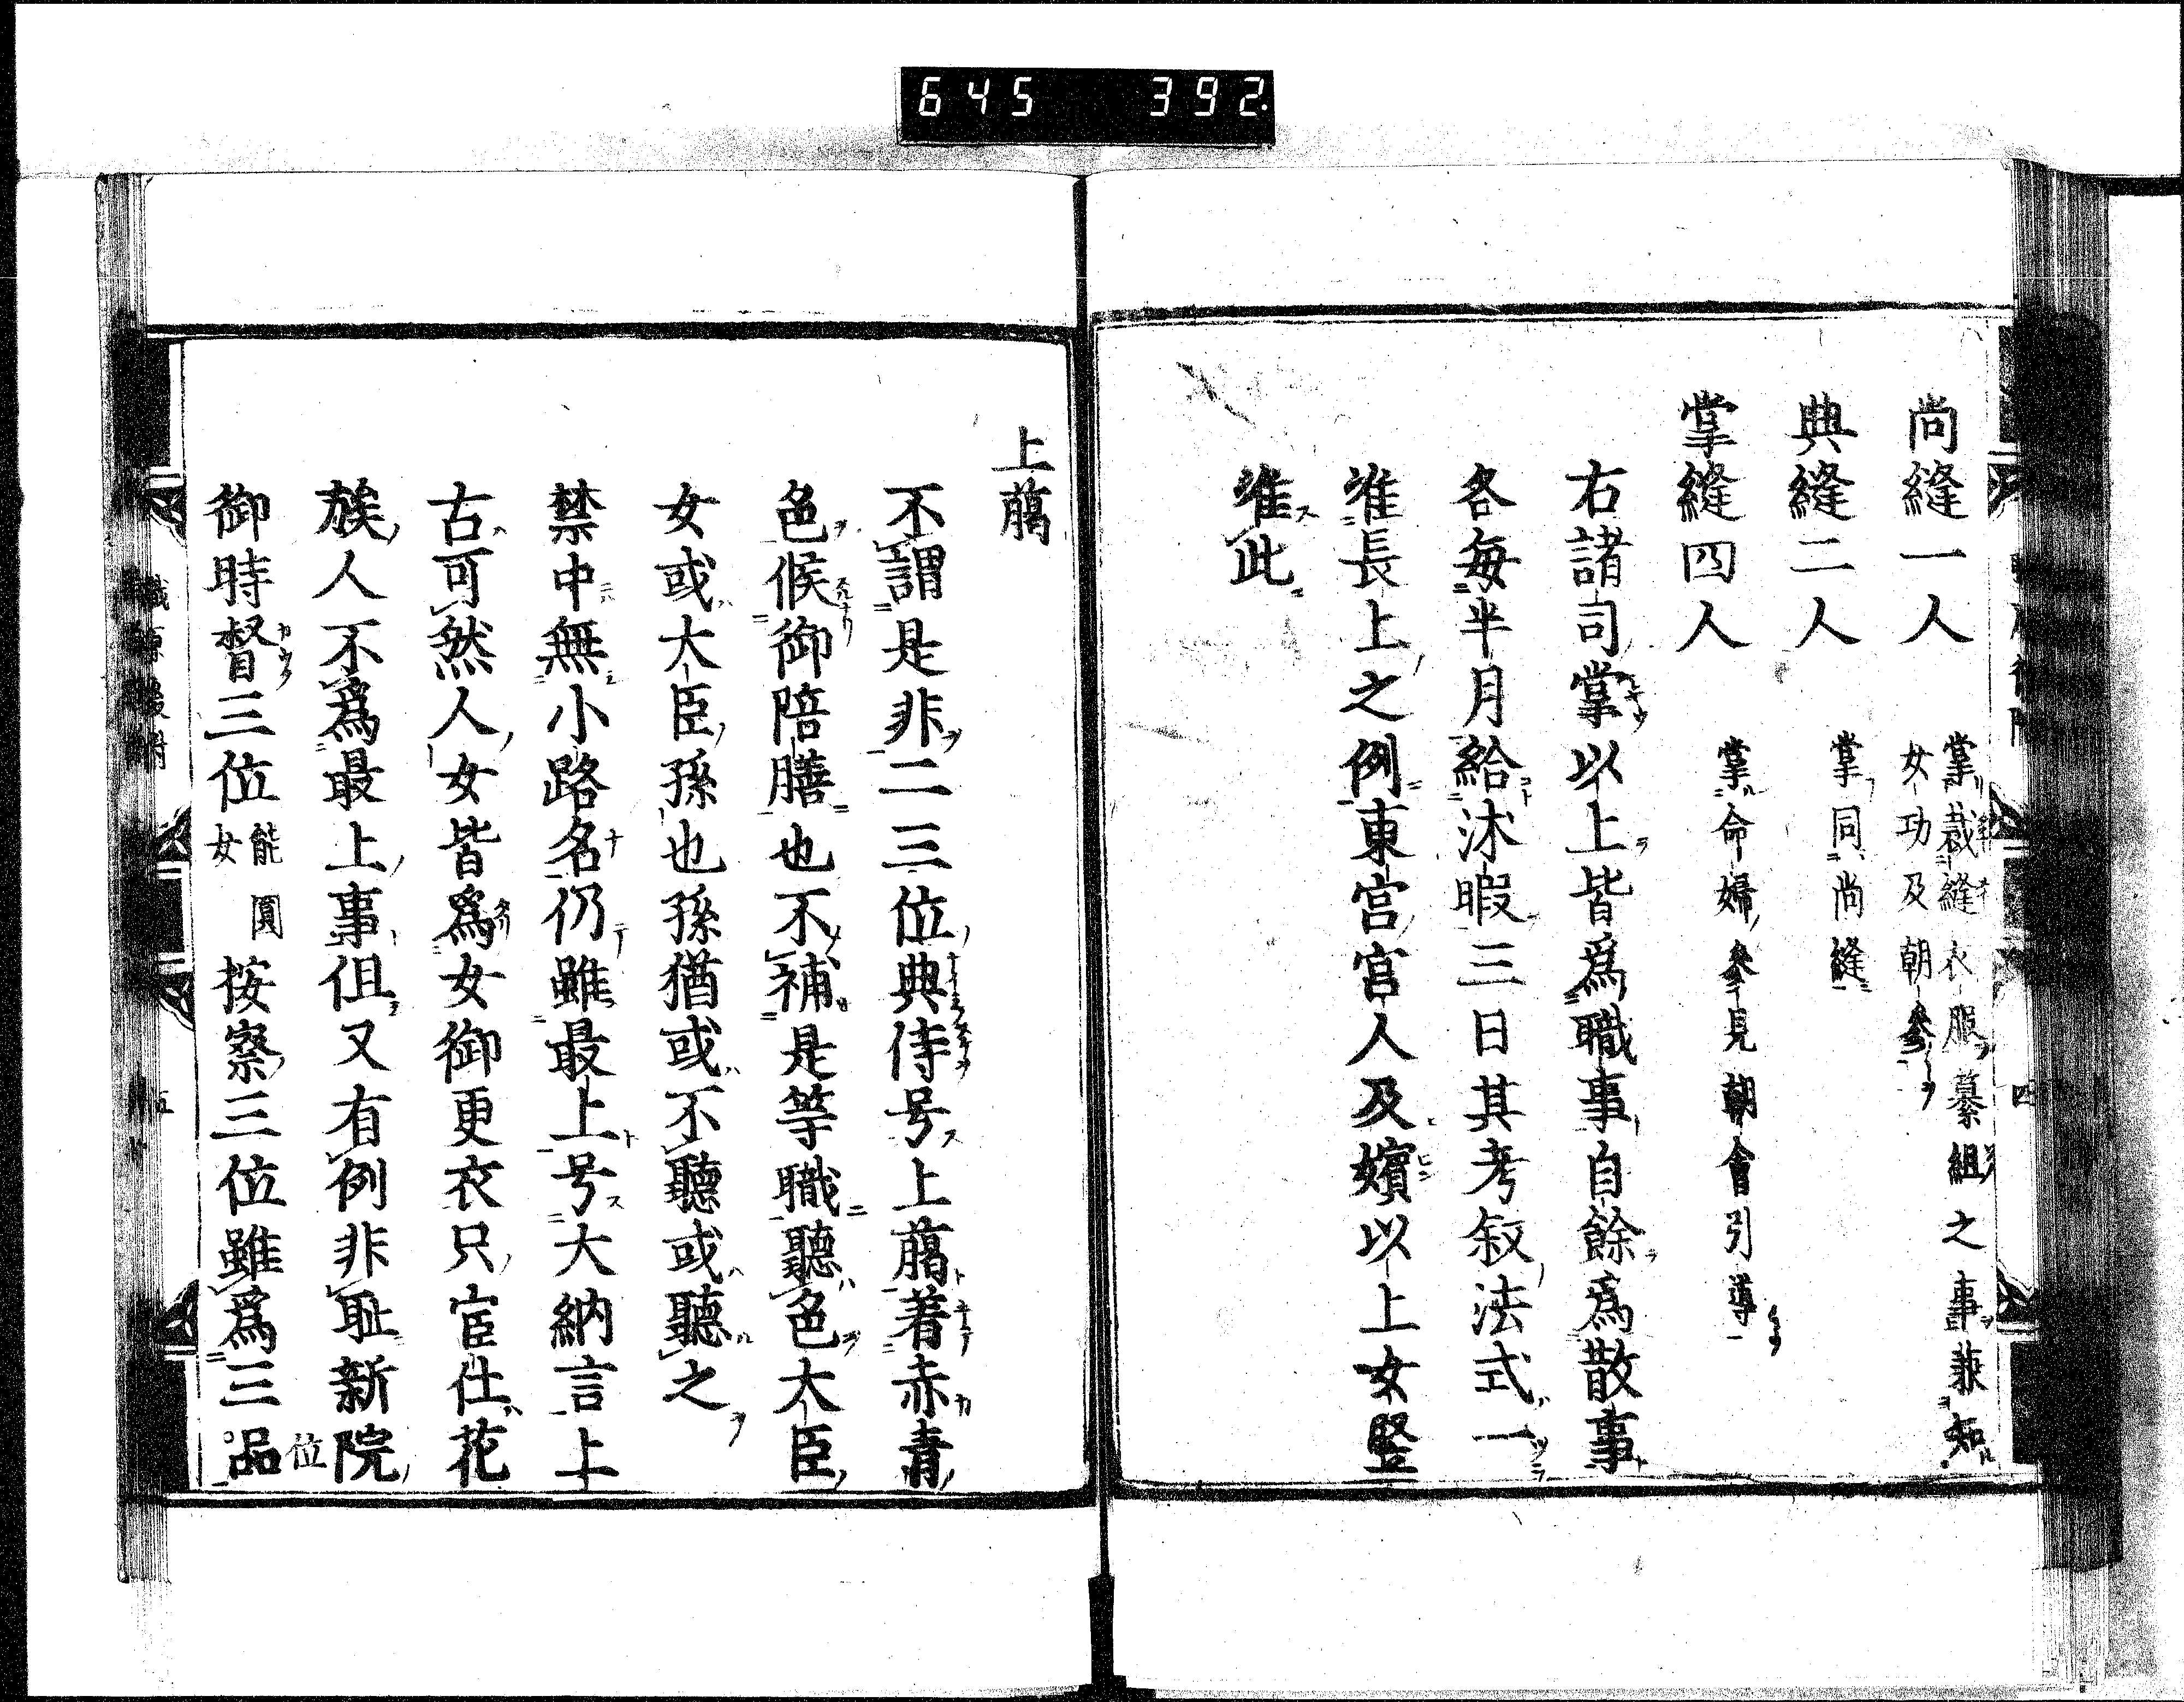 645 392
尚縫一人 掌裁縫衣服纂組之事兼知
女功及朝參
典縫二人 掌同尚縫
掌縫四人 掌命婦參見朝會引導
右諸司掌以上皆爲職事自餘爲散事
各毎半月給沐暇三日其考叙法式一
准長上之例東宮宮人及嬪以上女竪
准此
上﨟
不謂是非二三位典侍号上﨟着赤青
色候御陪膳也不補是等職聽色大臣
女或大臣孫也孫猶或不聽或聽之
禁中無小路名仍雖最上号大納言上
古可然人女皆爲女御更衣只宦仕花
族人不爲最上事但又有例非耻新院
御時督三位 能圓女 按察三位雖爲三品
位